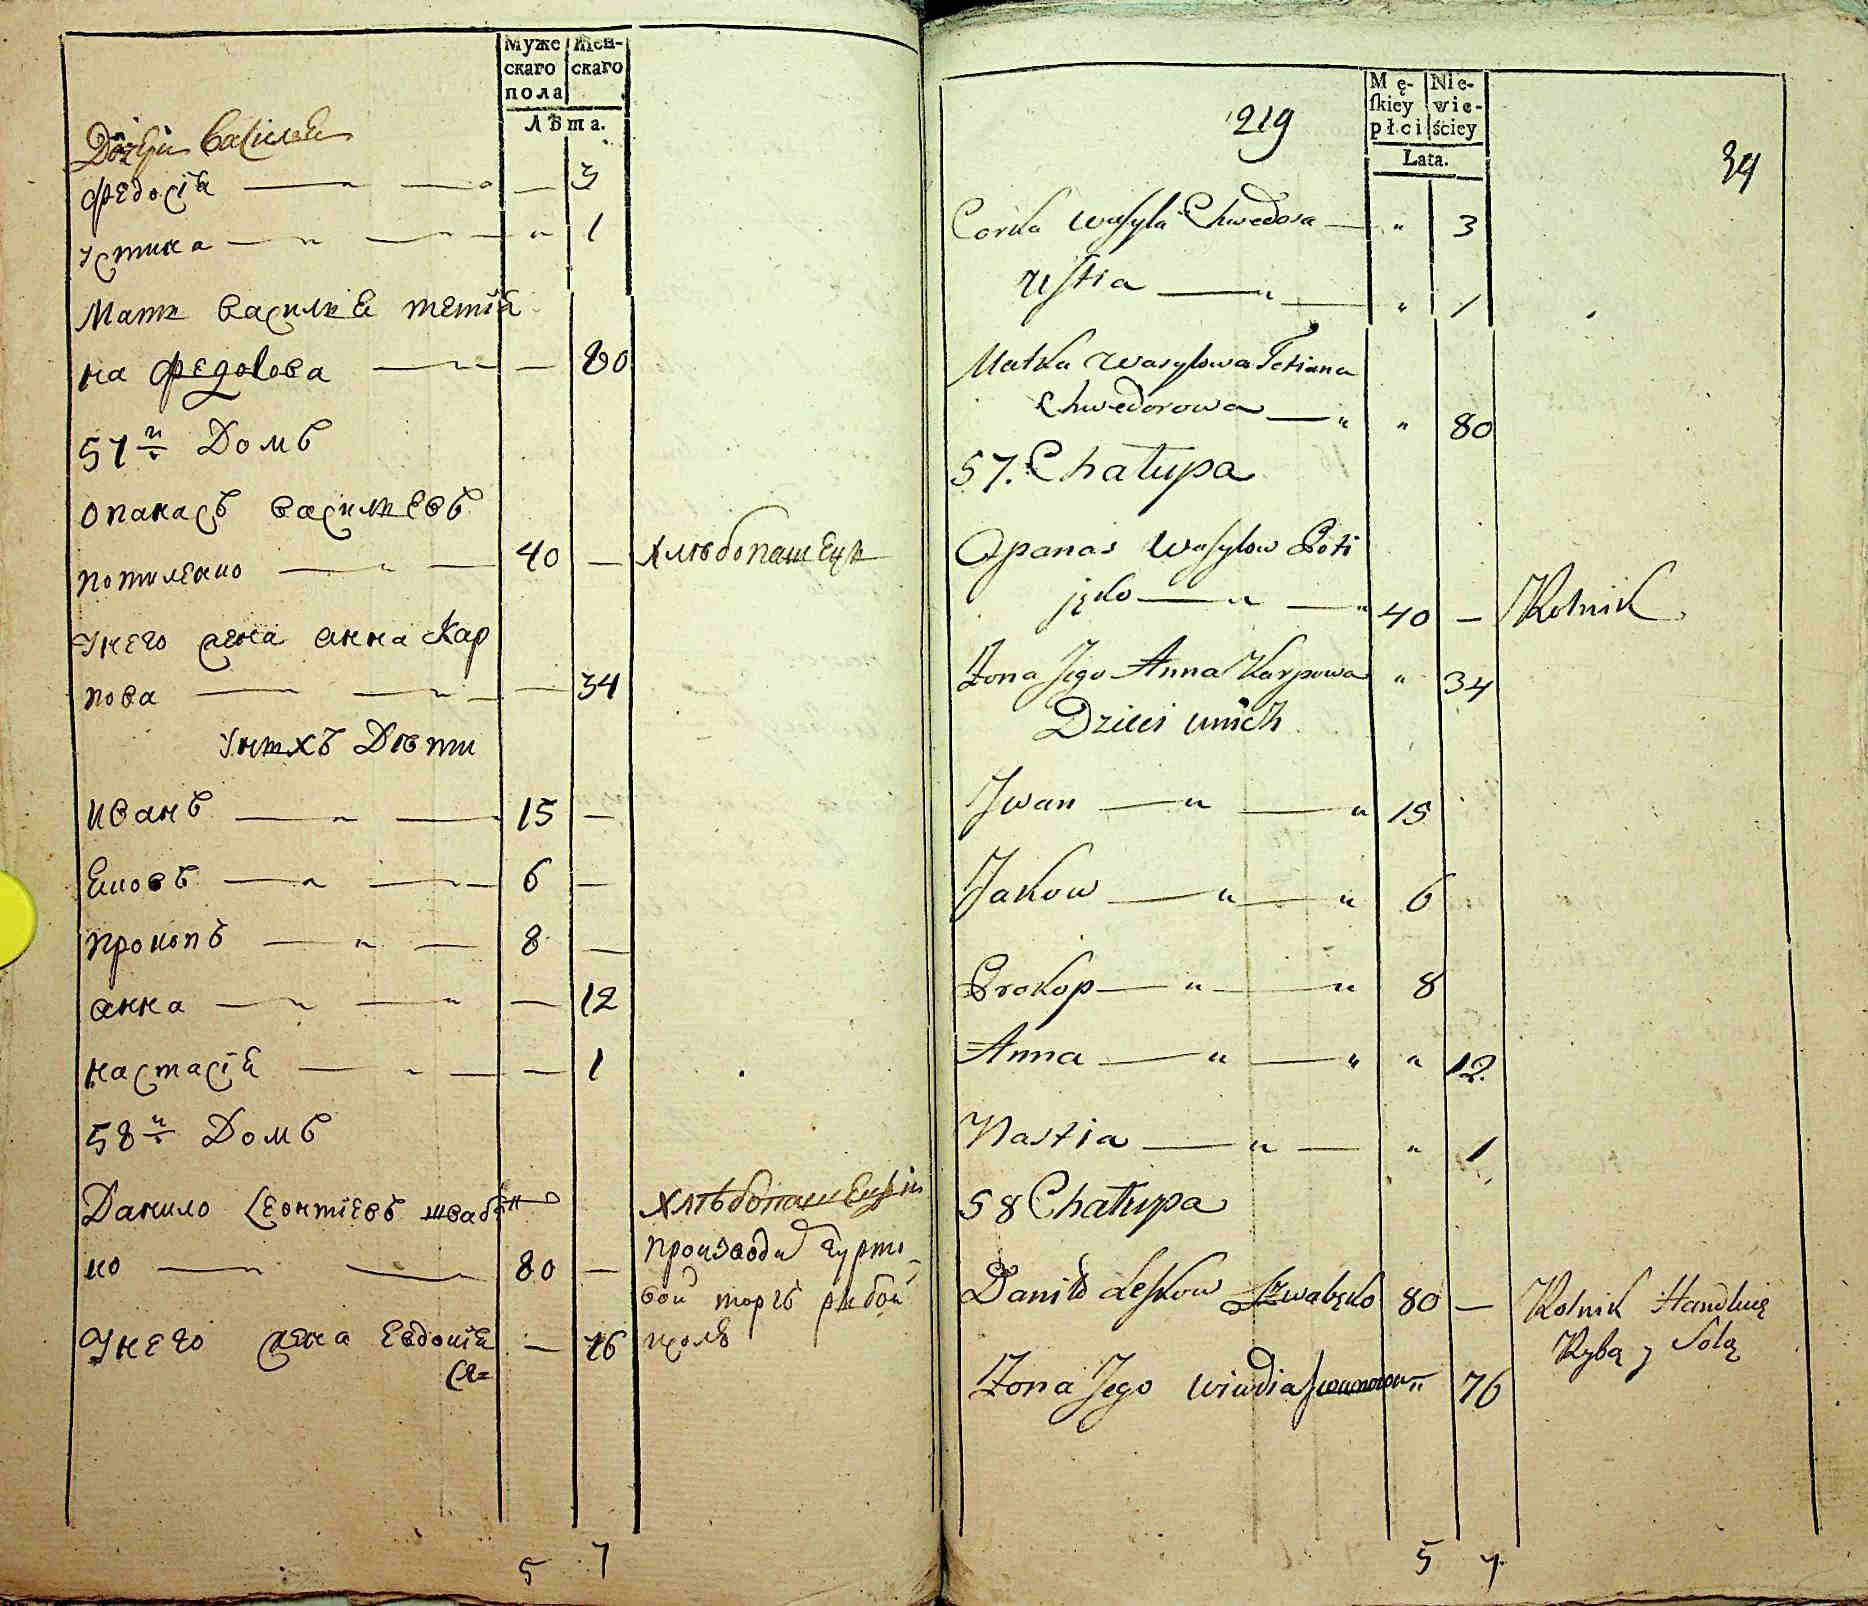 Муже
скаго
пола
Жен-
скаго
Лѣта.
Дочери Василья
Федосія — „ — „ — 3
Устина — „ — „ — „ 1
Мати василья тетія
на федорова — „ — 80
57й Домъ
Опанасъ васильевъ
потіенко — „ — 40 — хлѣбопашецъ
Унего жена анна Кар
пова — — „ — — 34
Унихъ Дѣти
Иванъ — „ — 15 —
Яковъ — „ — „ — 6 —
прокопъ — „ — 8 —
анна — „ — „ — 12
настасія — „ — — 1
58й Домъ
Данило Леонтіевъ швабен
ко — „ — „ 80 —
хлѣбопашецъ и
производи гурто
вой торгъ рибой
исолю
Унего жена Евдокія — 76
219
34
Mę-
skiey
płci
Nie-
wie-
ściey
Lata.
Corka Wasyla Chwedora — „ 3
Ustia — „ — „ 1
Matka Wasylowa Tetiana
Chwedorowa — „ „ 80
57. Chałupa
Opanas Wasylow Poti
jęko — „ — „ 40 — Rolnik
Żona Jego Anna Karpowa „ 34
Dzieci unich
Jwan — „ — „ 15
Jakow — „ — „ 6
Prokop — „ — „ 8
Anna — „ — „ „ 12.
Nastia — „ — „ 1
58 Chałupa
Daniło Leskow Szwabęko 80 — Rolnik Handluię
Rybą y Solą
Żona Jego Wiwdia Jwanowa „ 76
5 7
5 7.